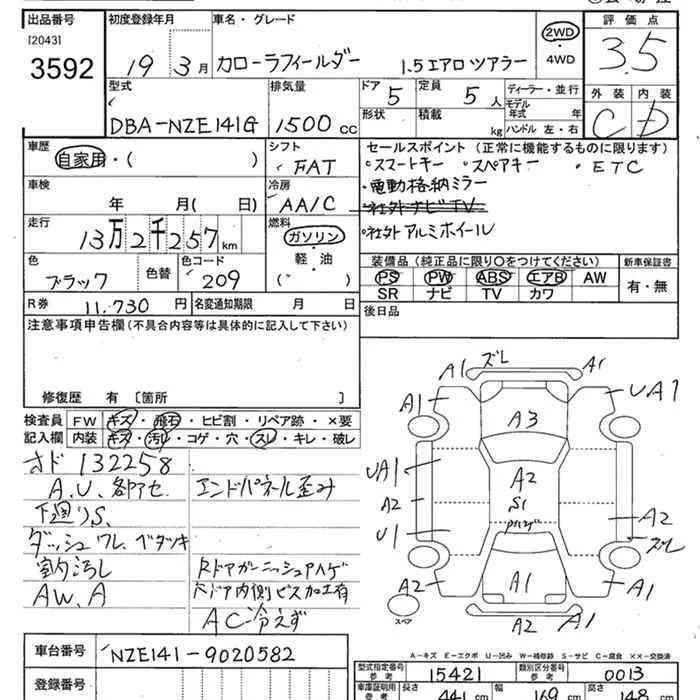 出品番号 初度登録年月 車名・グレード 評価点
[2043] 3592
19 3月 カローラフィールダー 1.5エアロツアラー 2WD・4WD 3.5
型式 排気量 ドア 5 定員 5人 ディーラー・並行 外装 内装
DBA-NZE141G 1500cc 形状 積載 kg モデル年式 年 ハンドル 左・右 C D
車歴 シフト セールスポイント (正常に機能するものに限ります)
自家用・( ) FAT ・スマートキー ・スペアキー ・ETC
車検 冷房 ・電動格納ミラー
年 月( 日) AA/C ・社外ナビTV
走行 燃料 ・社外アルミホイール
13万2千257km ガソリン
色 色替 色コード 軽・油 装備品 (純正品に限り○をつけてください) 新車保証書
ブラック 209 ( ) PS PW ABS エアB AW 有・無
R券 11,730円 名変通知期限 月 日 SR ナビ TV カワ
注意事項申告欄(不具合内容等は具体的に記入して下さい) 後日品
修復歴 有 [箇所 ]
検査員 FW キズ・飛石・ヒビ割・リペア跡・×要
記入欄 内装 キズ・汚れ・コゲ・穴・スレ・キレ・破レ
オド132258
A.U.各アセ. エンドパネル歪み
下廻りS.
ダッシュワレ.ベタツキ
室内汚し Rドアガーニッシュアハゲ
AW.A Rドア内側ビス加工有
AC冷えず
A1 ズレ A1
A1 A3 UA1
UA1 A2
A2 S1 A2
U1 ズレ
A2 A1 A1
スペア A2 A1
車台番号 NZE141-9020582
登録番号
A-キズ E-エクボ U-凹み W-補修跡 S-サビ C-腐食 XX-交換済
型式指定番号 参考 15421 類別区分番号 参考 0013
車庫証明用 参考 長さ 441cm 幅 169cm 高さ 148cm